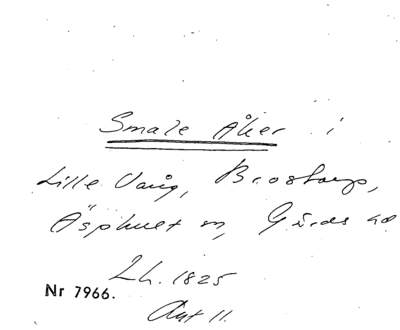 Smale Åker i
Lille Vång, Brostorp,
Äsphult sn, Gärds hd
Lh. 1825
Nr 7966.
Akt 11.